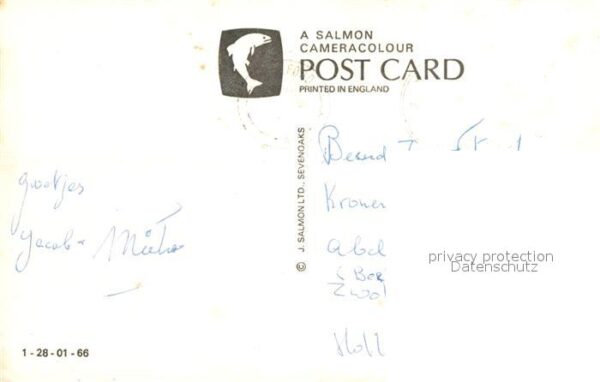 A SALMON
CAMERACOLOUR
POST CARD
PRINTED IN ENGLAND
© J. SALMON LTD., SEVENOAKS
groetjes
Jacob
Kroner
Abel
Zwol
Holl
privacy protection
Datenschutz
1 - 28 - 01 - 66